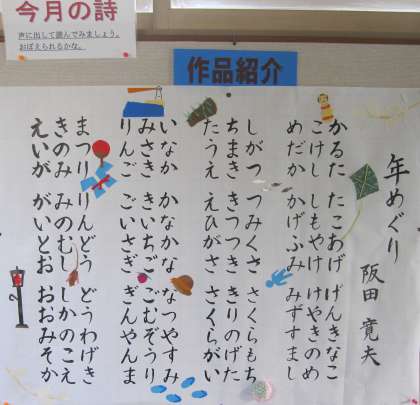 今月の詩
声に出して読んでみましょう。
おぼえられるかな。
作品紹介
年めぐり 阪田 寛夫
かるた たこあげ げんきなこ
こけし しもやけ けやきのめ
めだか かげふみ みずすまし
しがつ つみくさ さくらもち
ちまき きつつき きりのげた
たうえ えひがさ さくらがい
いなか かなかな なつやすみ
みさき きいちご ごむぞうり
りんご ごいさぎ ぎんやんま
まつり りんどう どうわげき
きのみ みのむし しかのこえ
えいが がいとお おおみそか